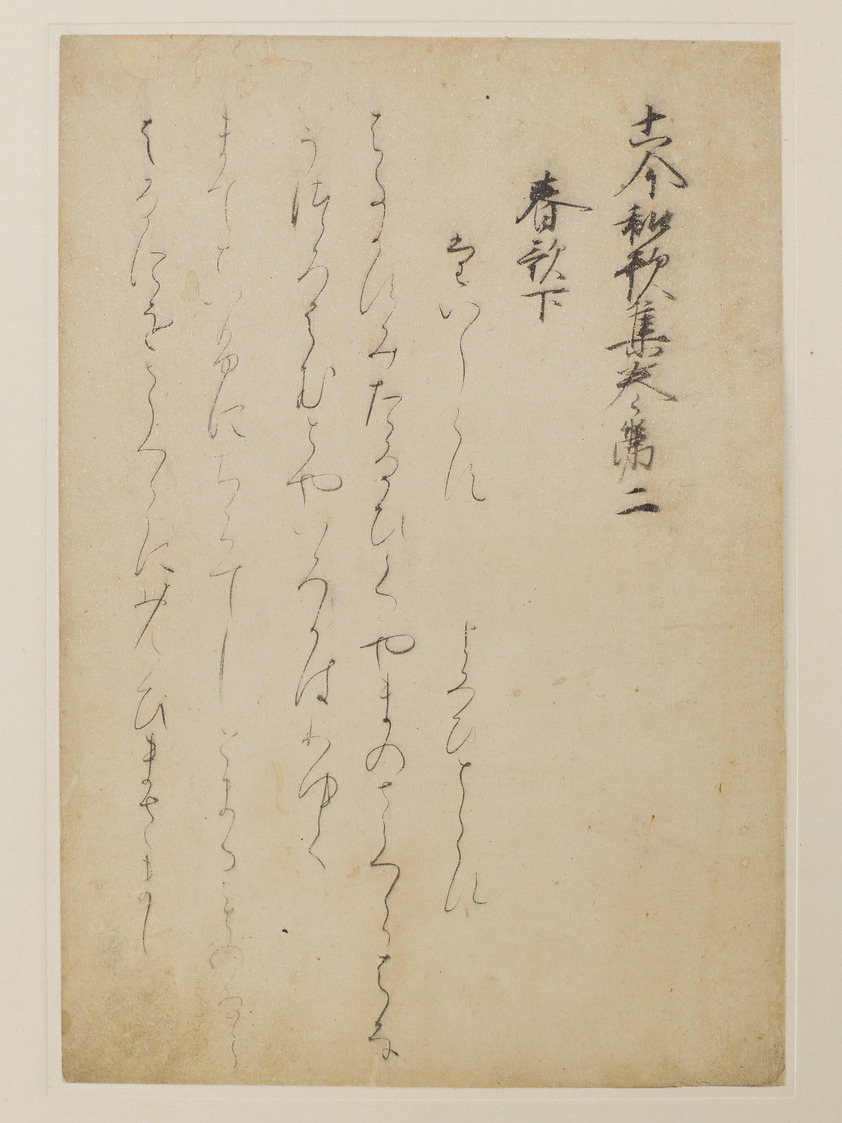 古今和歌集巻第二
春歌下
たいしらす　よみひとしらす
はるかすみたなひくやまのさくらはな
うつろはむとやいろかはりゆく
まてといふにちらてしとまるものなら
はなにをさくらにおもひまさまし